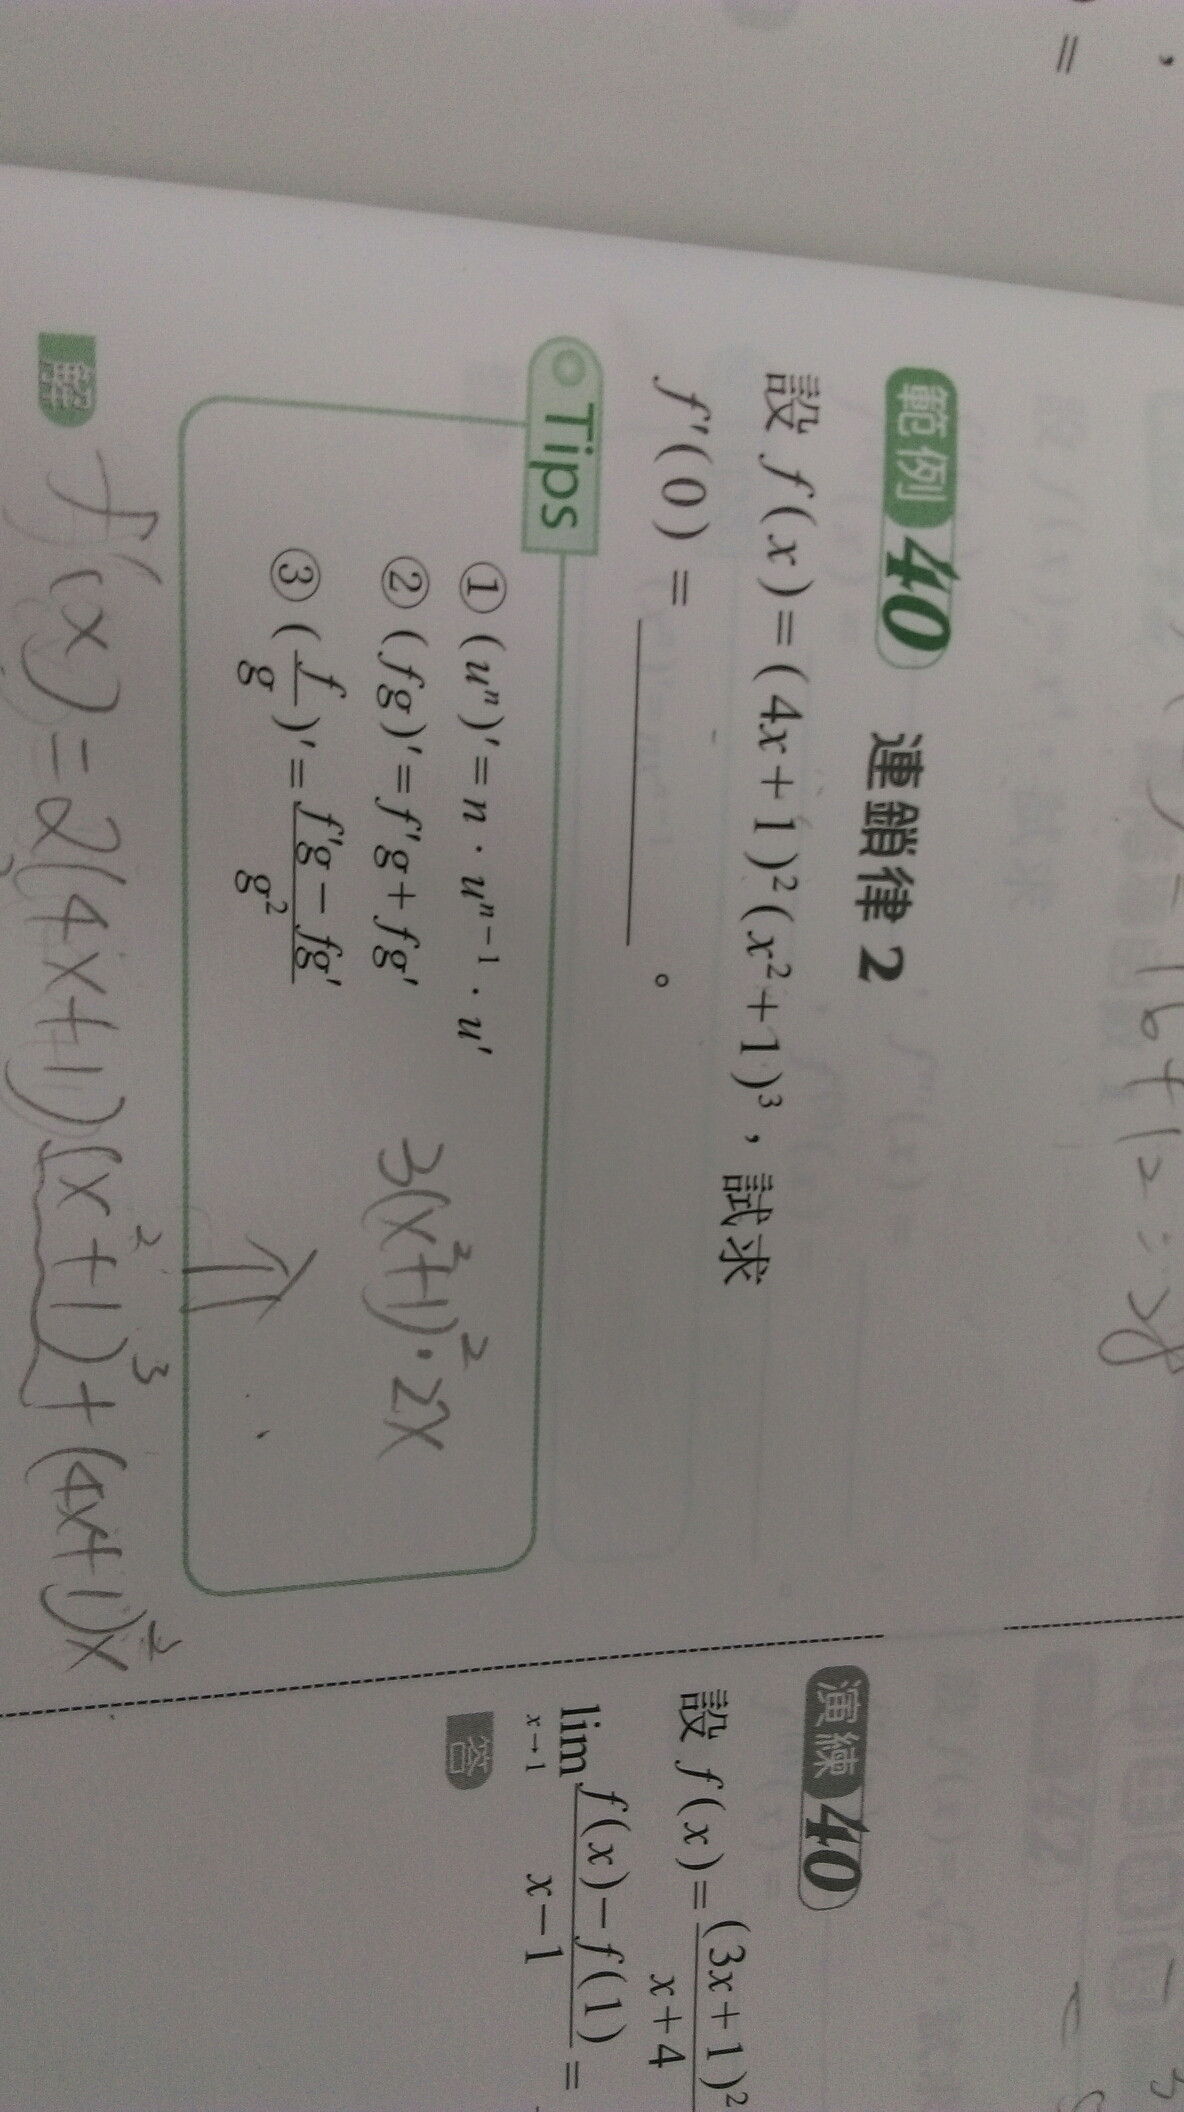 範例 40 連鎖律 2
設 f(x)=(4x+1)²(x²+1)³,試求
f'(0) = ________ 。
Tips
① (uⁿ)'=n·uⁿ⁻¹·u'
② (fg)'=f'g+fg'
③ (f/g)'=(f'g−fg')/g²
3(x²+1)²·2x
解 f'(x)=2(4x+1)(x²+1)³+(4x+1)²x
演練 40
設 f(x)=(3x+1)²/(x+4)
lim x→1 (f(x)−f(1))/(x−1) =
答